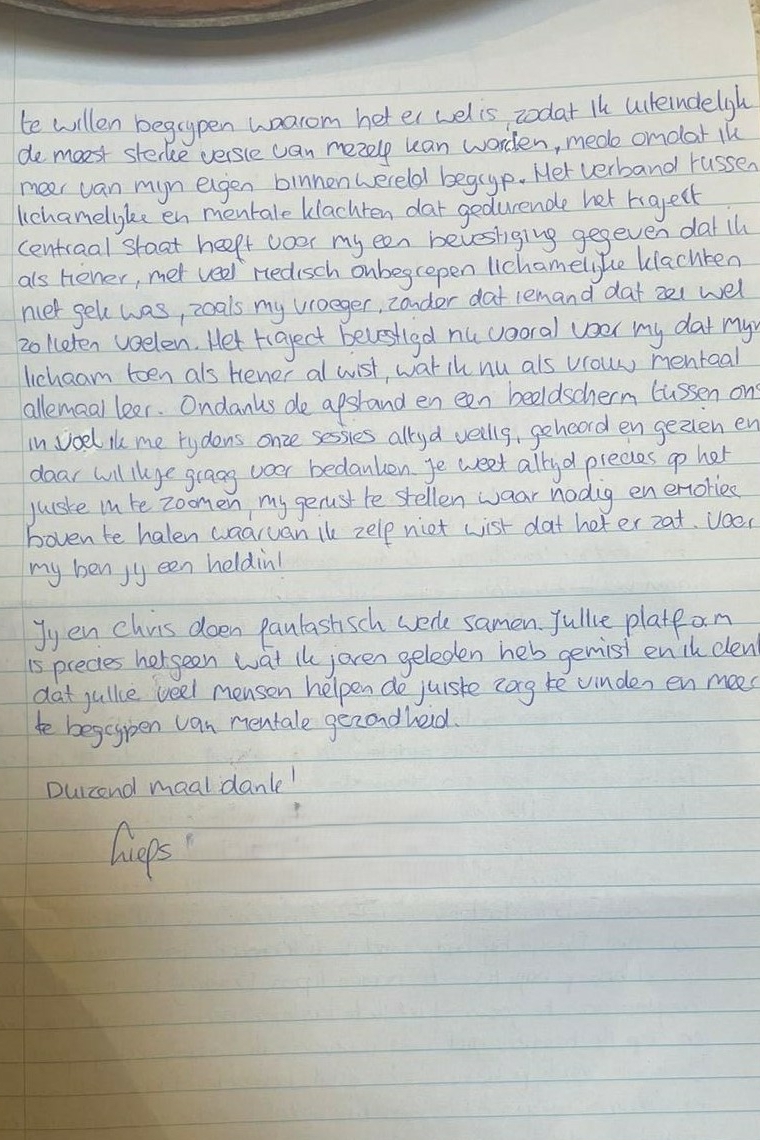 te willen begrypen waarom het er wel is, zodat ik uiteindelyk
de meest sterke versie van mezelf kan worden, mede omdat ik
meer van myn eigen binnenwereld begryp. Het verband tussen
lichamelyke en mentale klachten dat gedurende het traject
centraal staat heeft voor my een bevestiging gegeven dat ik
als tiener, met veel medisch onbegrepen lichamelyke klachten
niet gek was, zoals my vroeger, zonder dat iemand dat zei wel
zo lieten voelen. Het traject bevestigd nu vooral voor my dat myn
lichaam toen als tiener al wist, wat ik nu als vrouw mentaal
allemaal leer. Ondanks de afstand en een beeldscherm tussen ons
in voel ik me tydens onze sessies altyd veilig, gehoord en gezien en
daar wil ik je graag voor bedanken. Je weet altyd precies op het
juiste in te zoomen, my gerust te stellen waar nodig en emoties
boven te halen waarvan ik zelf niet wist dat het er zat. Voor
my ben jy een heldin!
Jy en Chris doen fantastisch werk samen. Jullie platform
is precies hetgeen wat ik jaren geleden heb gemist en ik denk
dat jullie veel mensen helpen de juiste zorg te vinden en meer
te begrypen van mentale gezondheid.
Duizend maal dank!
Liefs